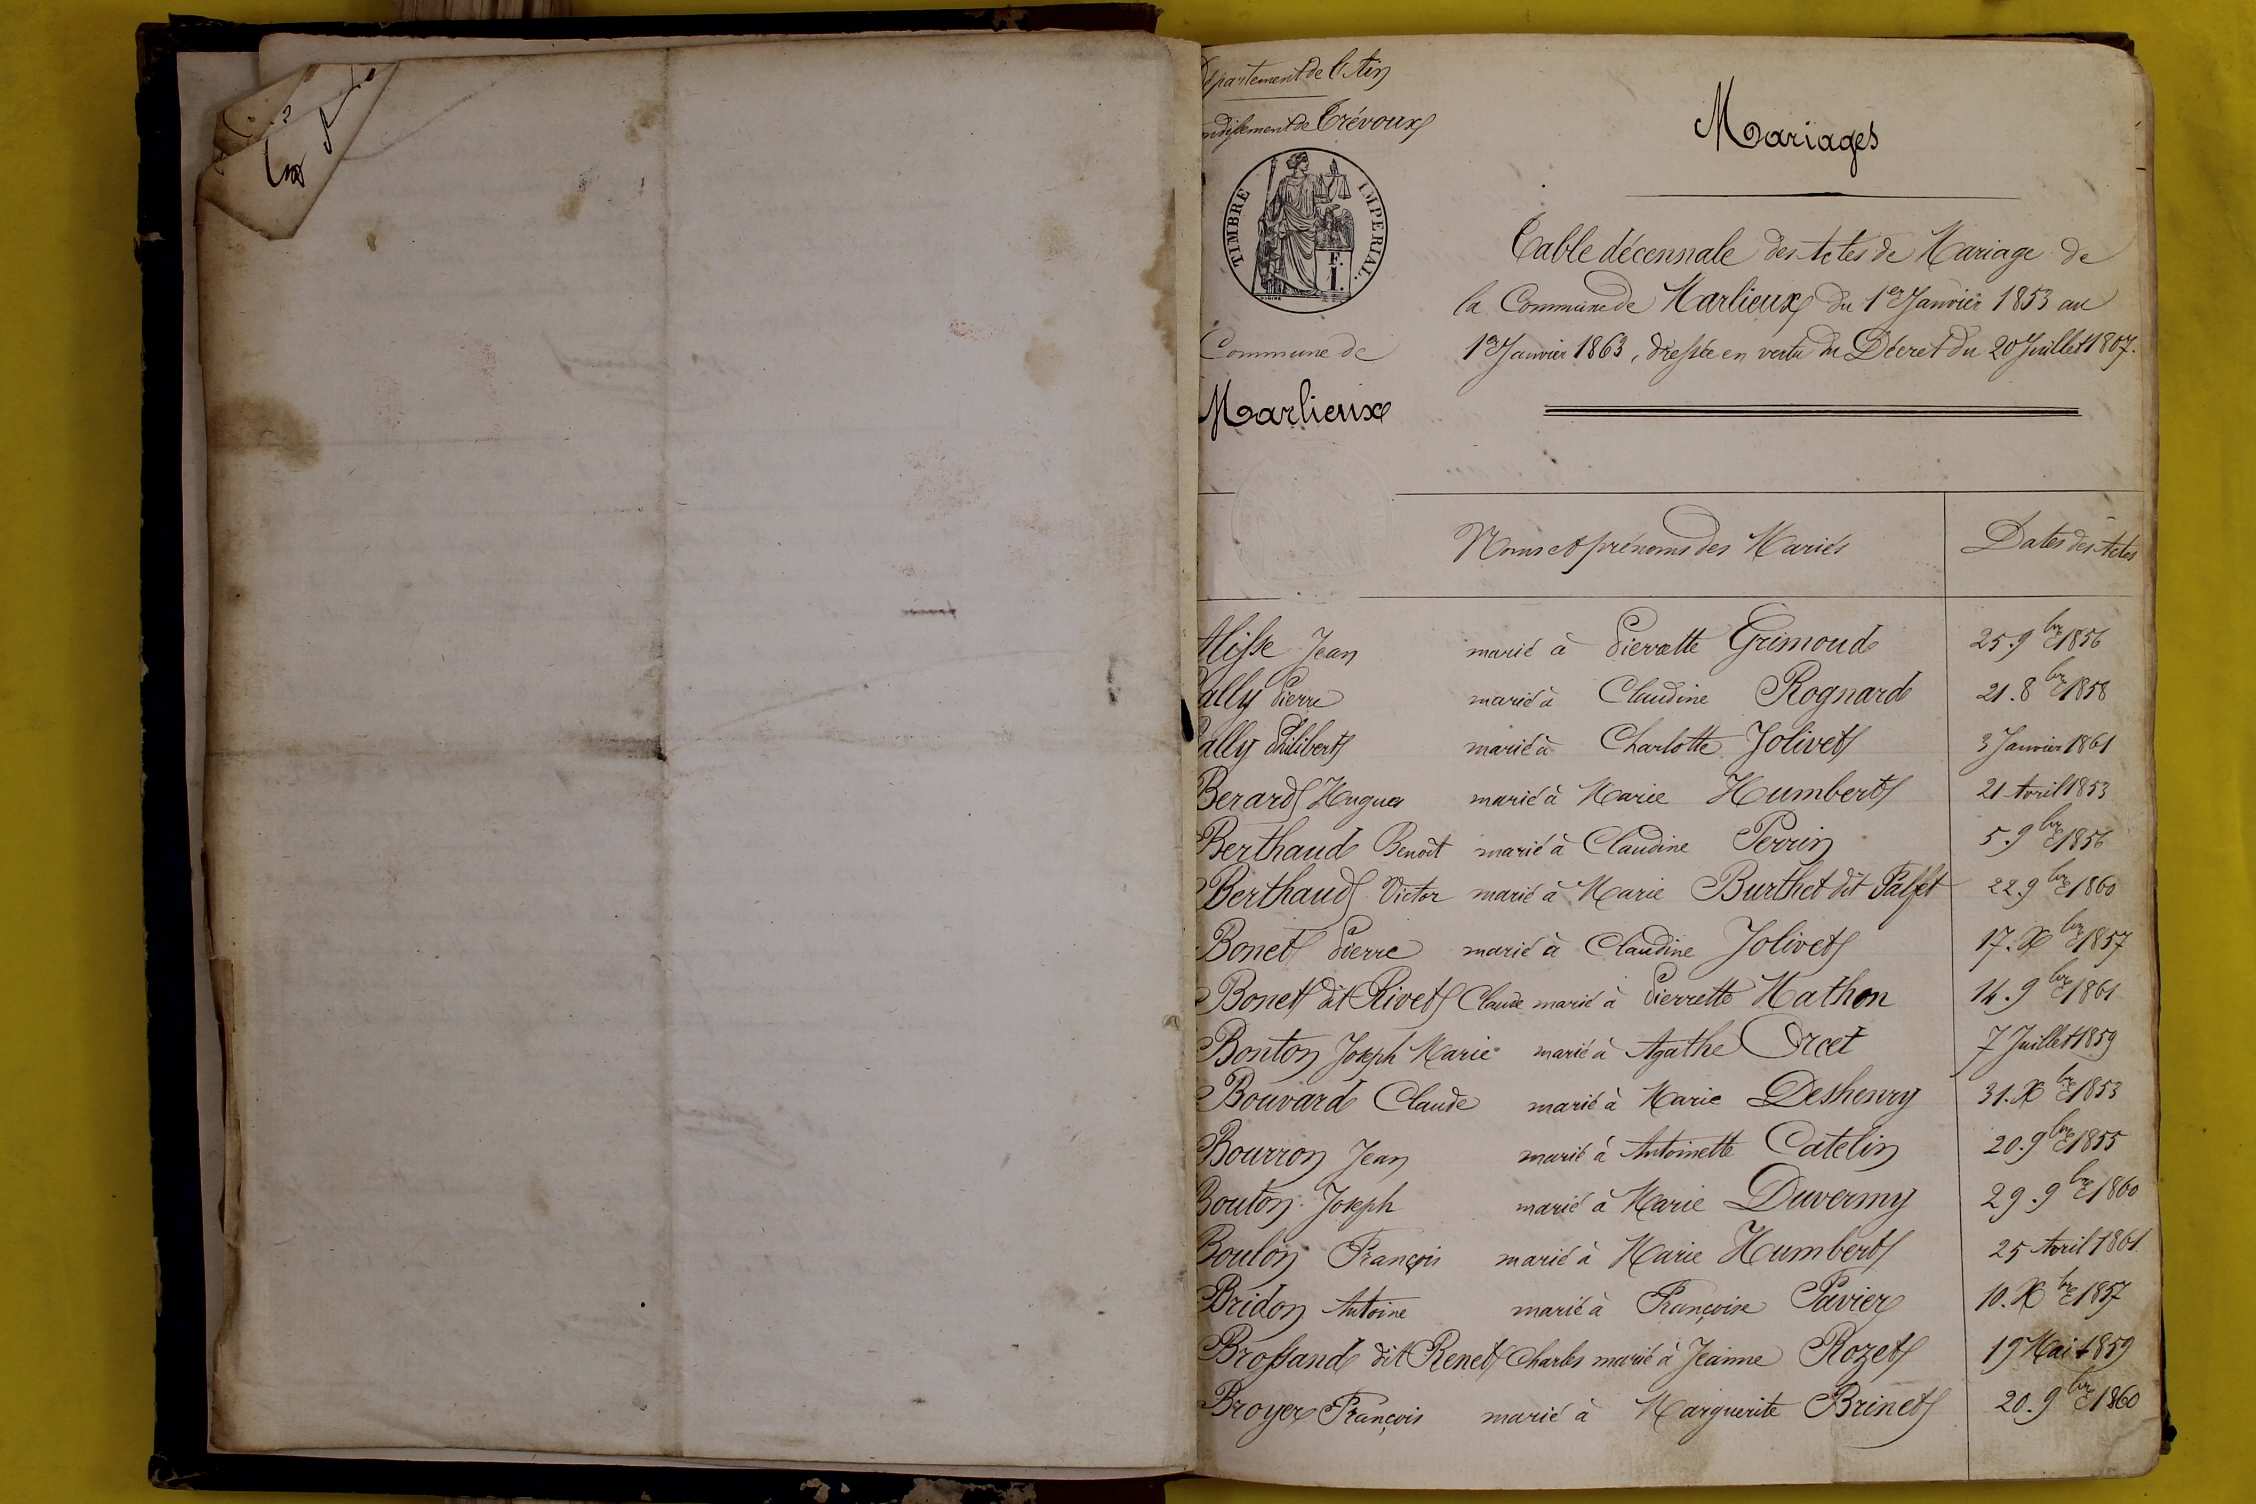 Département de l'Ain
Arrondissement de Trévoux
TIMBRE IMPERIAL.
F.
I.
Commune de
Marlieux
Mariages
Table décennale des Actes de Mariage de
la Commune de Marlieux du 1er Janvier 1853 au
1er Janvier 1863, dressée en vertu du Décret du 20 Juillet 1807.
Noms et prénoms des Mariés Dates des Actes
Alisse Jean marié à Pierrette Grimoud 25. 9bre 1856
Bally Pierre marié à Claudine Rognard 21. 8bre 1858
Bally Philibert marié à Charlotte Jolivet 3 Janvier 1861
Berard Hugues marié à Marie Humbert 21 Avril 1853
Berthaud Benoît marié à Claudine Perrin 5. 9bre 1856
Berthaud Victor marié à Marie Burthet dit 22 9bre 1860
Bonet Pierre marié à Claudine Jolivet 17. Xbre 1857
Bonet dit Rivet Claude marié à Pierrette Mathon 14. 9bre 1861
Bonton Joseph Marie marié à Agathe Orcet 7 Juillet 1859
Bouvard Claude marié à Marie Deshenry 31. Xbre 1853
Bourron Jean marié à Antoinette Catelin 20. 9bre 1855
Bouton Joseph marié à Marie Duvermy 29. 9bre 1860
Boulon François marié à Marie Humbert 25 Avril 1861
Bridon Antoine marié à Françoise Pavier 10. Xbre 1857
Brossand dit Renet Charles marié à Jeanne Rozet 19 Mai 1859
Broyer François marié à Marguerite Brinet 20. 9bre 1860